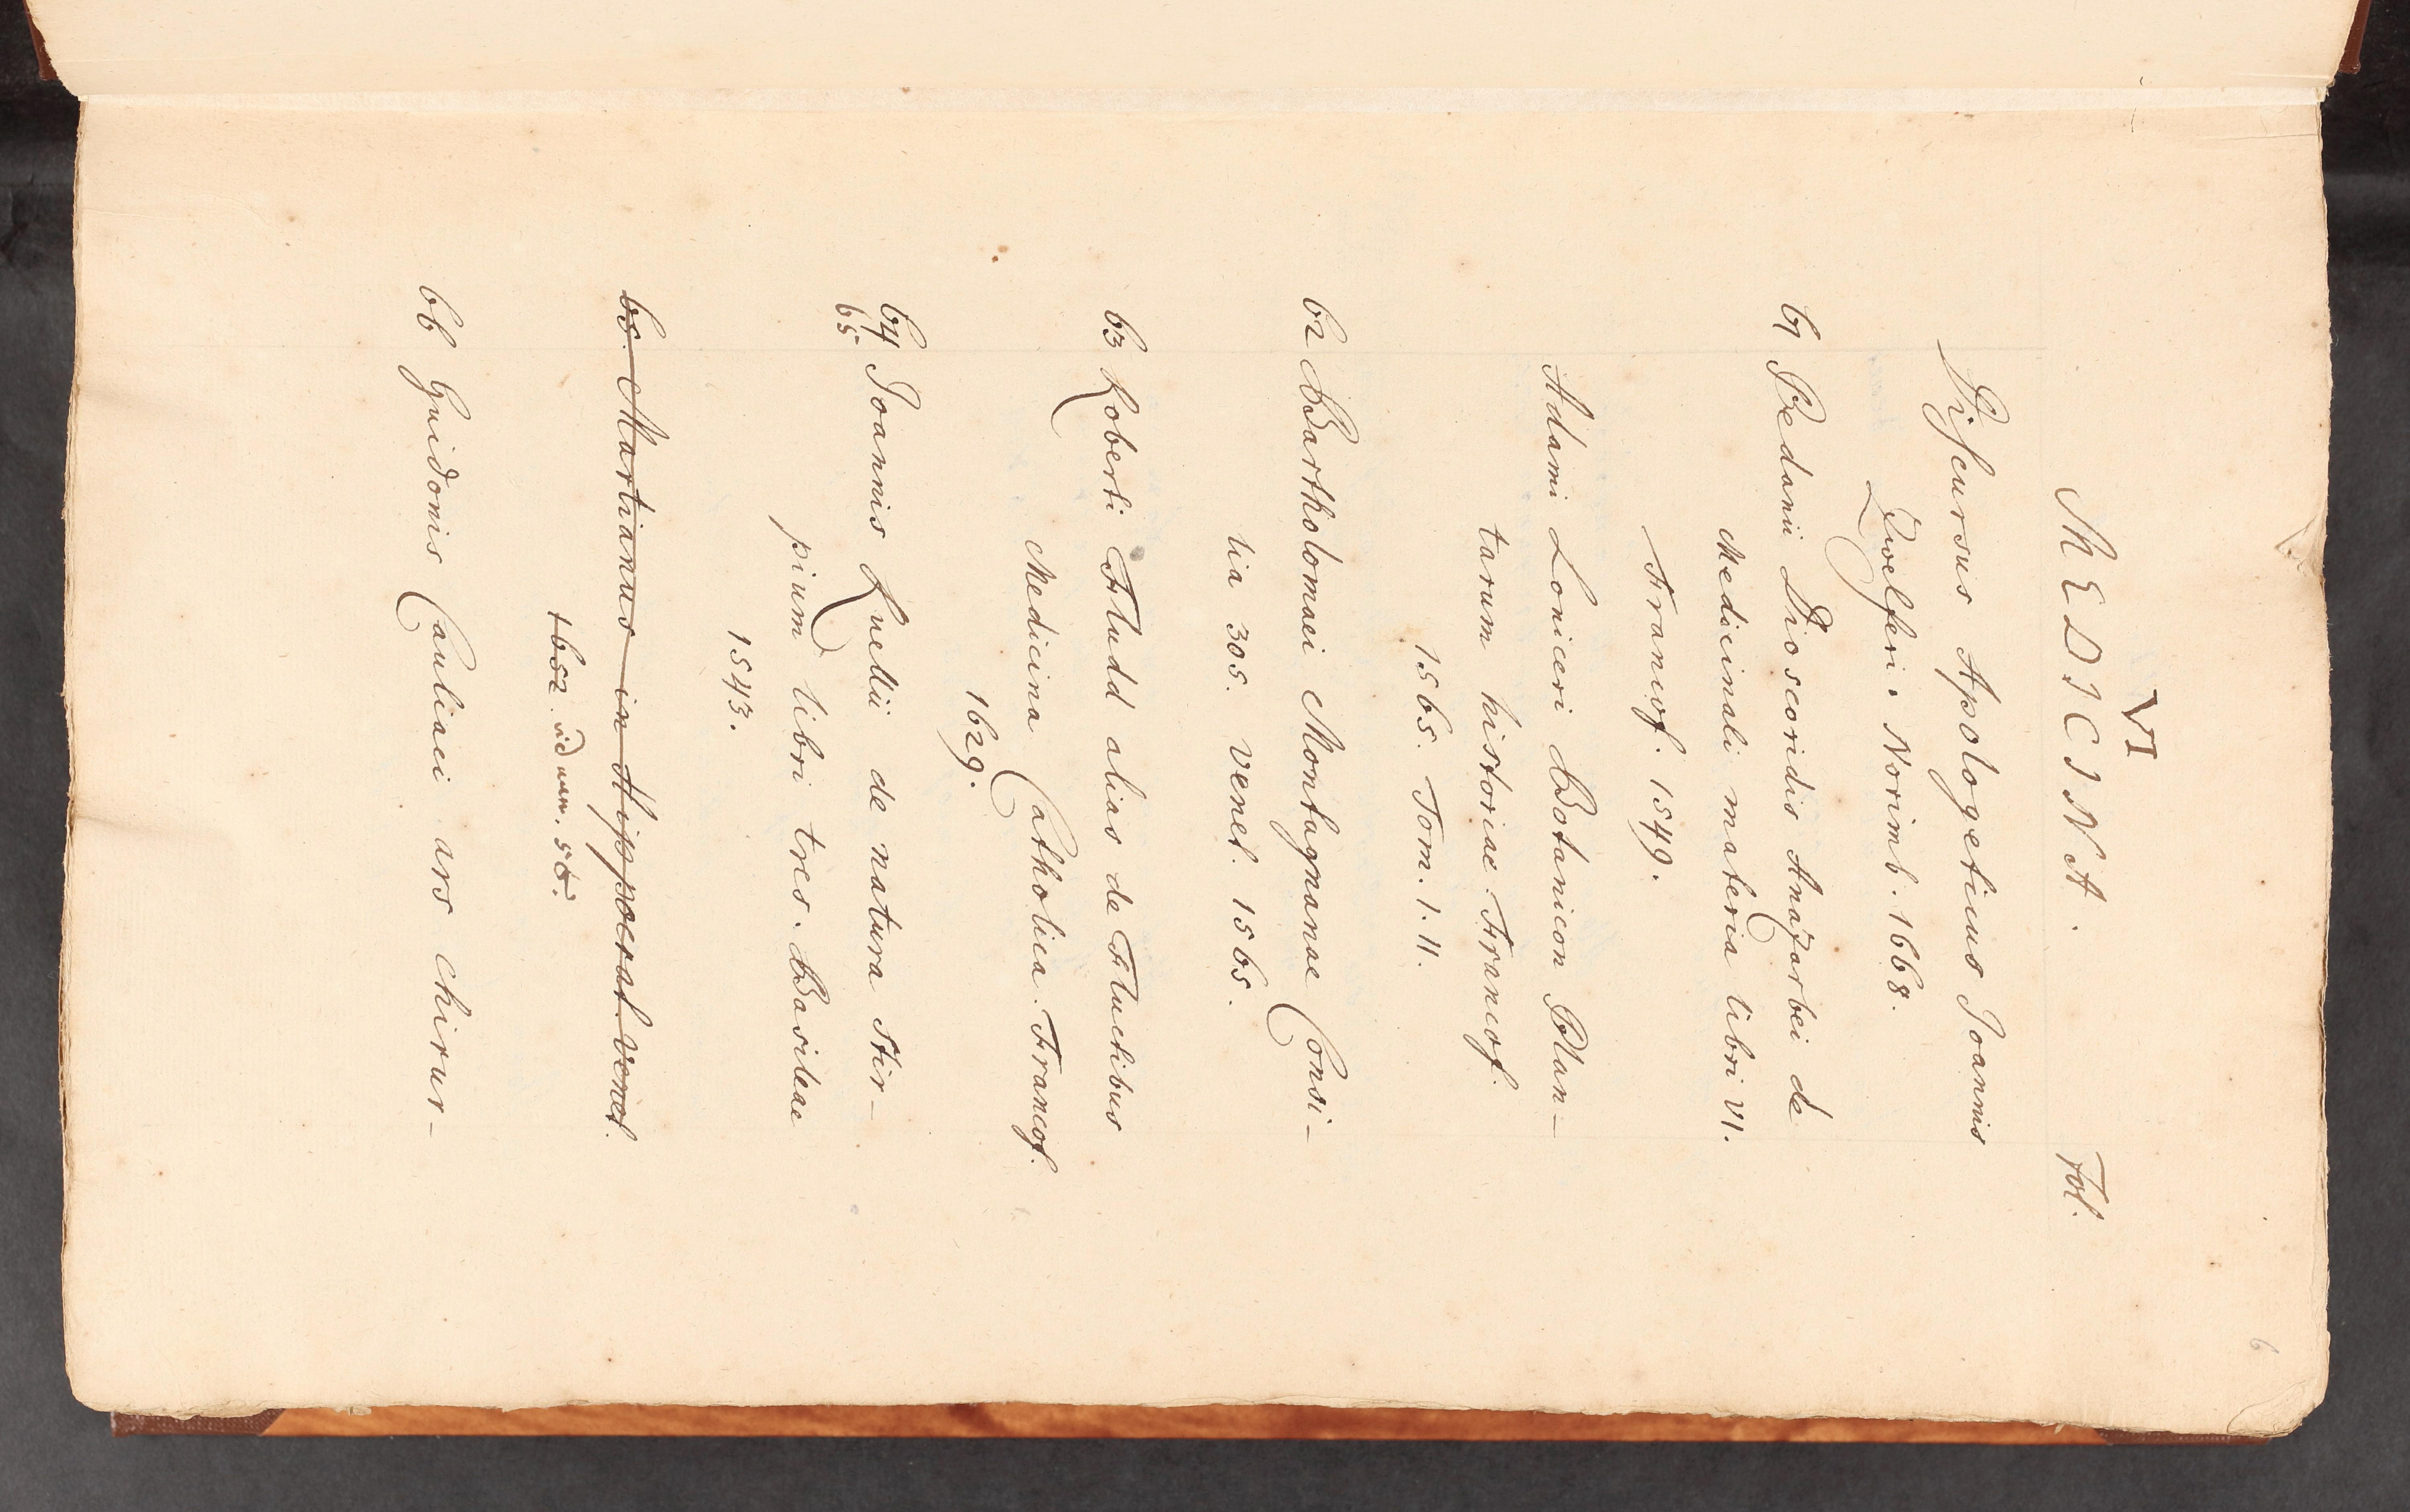 VI
MEDICINA.
Fol.
Discursus Apologeticus Joannis
Zwelferi. Norimb. 1668.
61 Pedanii Dioscoridis Anazarbei de
Medicinali materia libri VI.
Francof. 1549.
Adami Loniceri Botanicon Plan-
tarum historiae. Francof.
1565. Tom. I. II.
62 Bartholomaei Montagnanae Consi-
lia 305. Venet. 1565.
63 Roberti Fludd alias de Fluctibus
Medicina Catholica. Francof.
1629.
64 Joannis Ruellii de natura stir-
65.
pium libri tres. Basileae
1543.
65. Martianus in Hippocrat. Venet.
1652. vid num. 56.
66 Guidonis Cauliaci ars chirur-
6